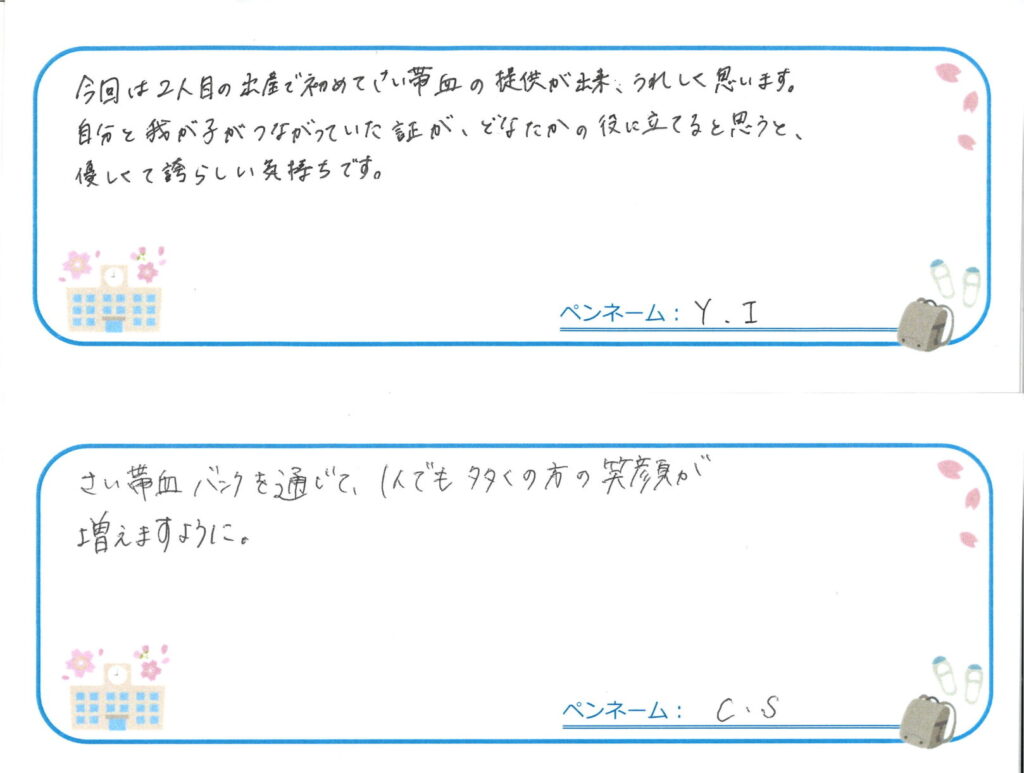 今回は2人目の出産で初めてさい帯血の提供が出来、うれしく思います。
自分と我が子がつながっていた証が、どなたかの役に立てると思うと、
優しくて誇らしい気持ちです。
ペンネーム： Y.I
さい帯血バンクを通じて、1人でも多くの方の笑顔が
増えますように。
ペンネーム： C.S